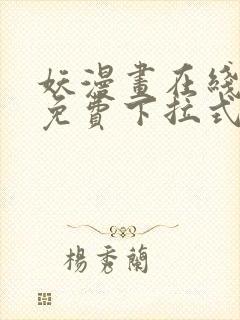 妖漫畫在綫
免費下拉式
楊秀蘭